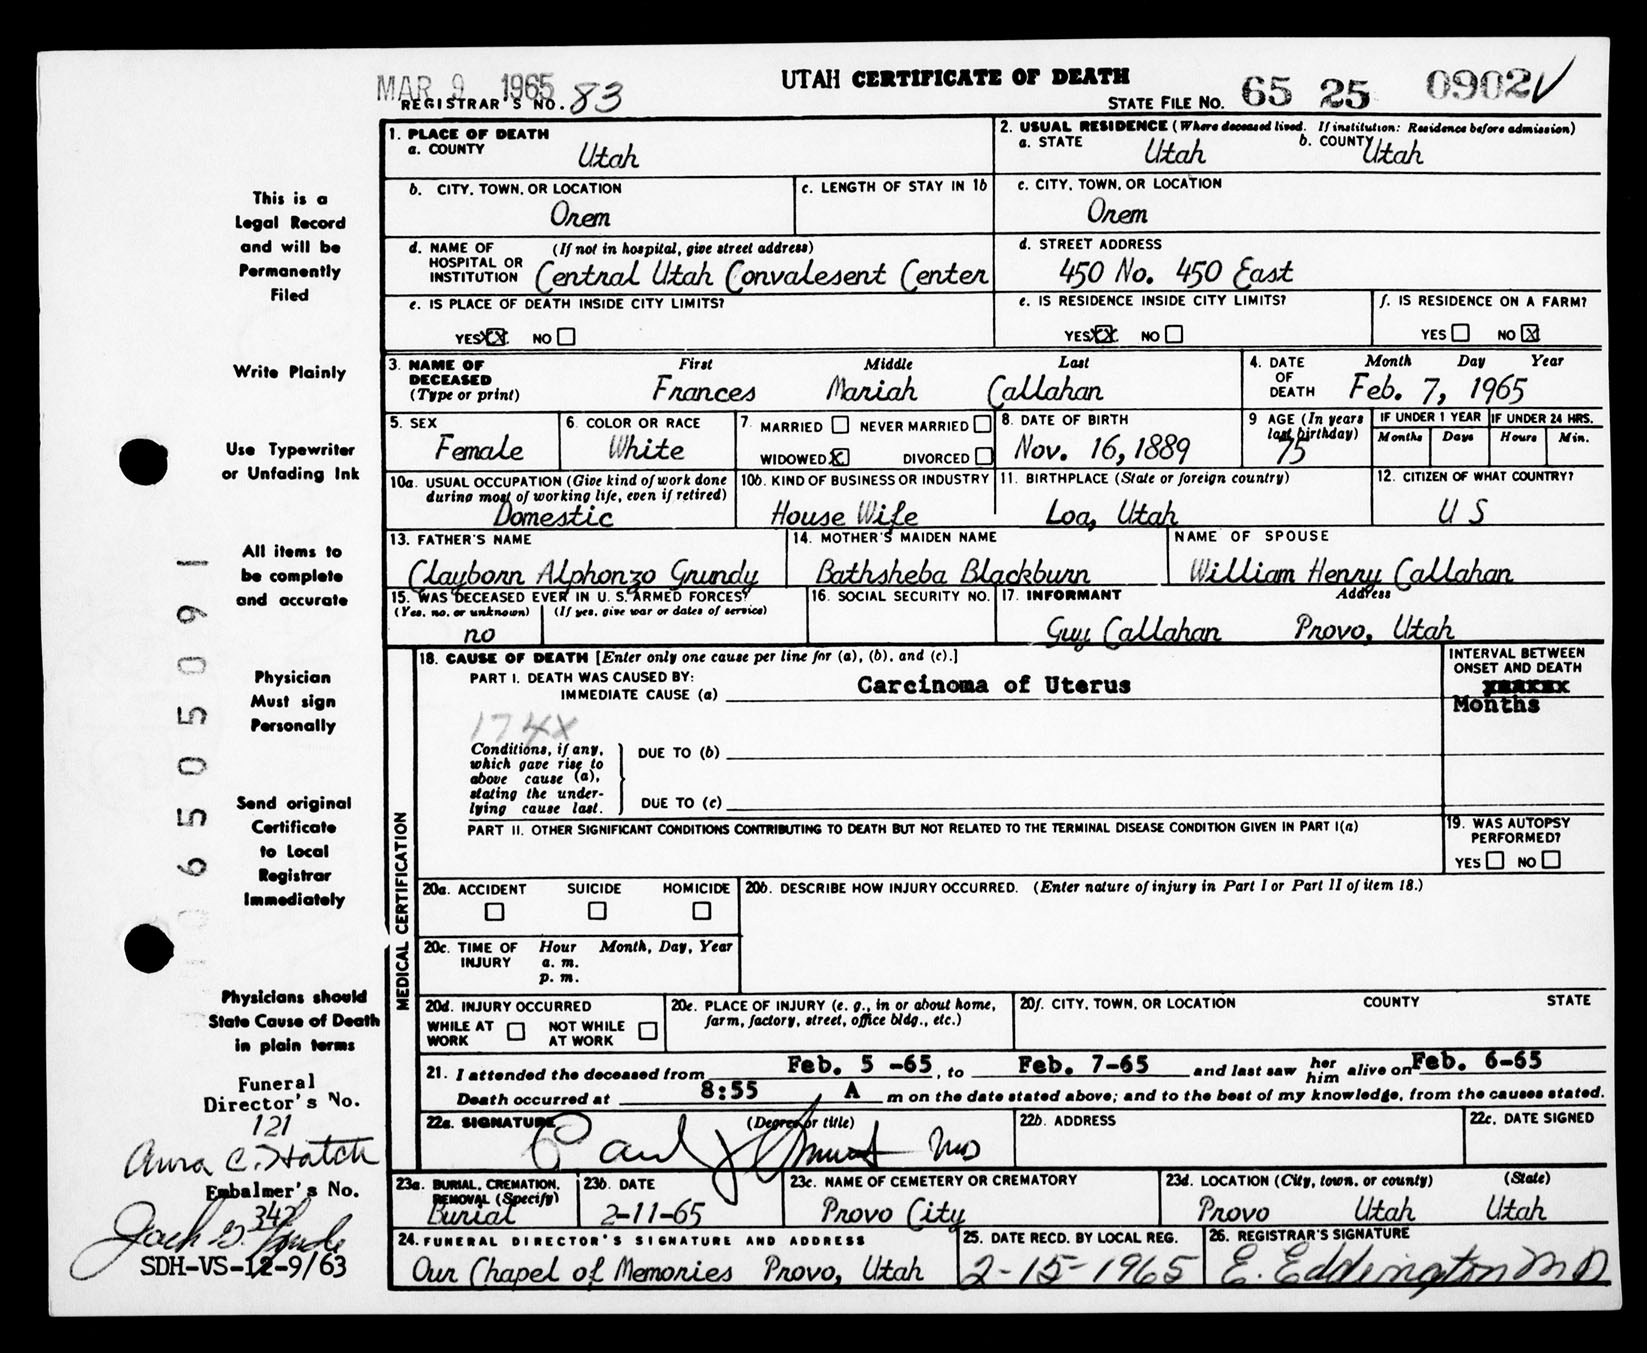 MAR 9 1965
UTAH CERTIFICATE OF DEATH
REGISTRAR'S NO. 83
STATE FILE NO. 65 25 0902
1. PLACE OF DEATH
a. COUNTY Utah
2. USUAL RESIDENCE (Where deceased lived. If institution: Residence before admission)
a. STATE Utah b. COUNTY Utah
b. CITY, TOWN, OR LOCATION Orem
c. LENGTH OF STAY IN 1b
c. CITY, TOWN, OR LOCATION Orem
d. NAME OF HOSPITAL OR INSTITUTION (If not in hospital, give street address) Central Utah Convalesent Center
d. STREET ADDRESS 450 No. 450 East
e. IS PLACE OF DEATH INSIDE CITY LIMITS?
YES XX NO
e. IS RESIDENCE INSIDE CITY LIMITS?
YES XX NO
f. IS RESIDENCE ON A FARM?
YES NO X
3. NAME OF DECEASED (Type or print) First Middle Last
Frances Mariah Callahan
4. DATE OF DEATH Month Day Year
Feb. 7, 1965
5. SEX Female
6. COLOR OR RACE White
7. MARRIED NEVER MARRIED
WIDOWED X DIVORCED
8. DATE OF BIRTH Nov. 16, 1889
9 AGE (In years last birthday) 75
IF UNDER 1 YEAR Months Days
IF UNDER 24 HRS. Hours Min.
10a. USUAL OCCUPATION (Give kind of work done during most of working life, even if retired) Domestic
10b. KIND OF BUSINESS OR INDUSTRY House Wife
11. BIRTHPLACE (State or foreign country) Loa, Utah
12. CITIZEN OF WHAT COUNTRY? U S
13. FATHER'S NAME Clayborn Alphonzo Grundy
14. MOTHER'S MAIDEN NAME Bathsheba Blackburn
NAME OF SPOUSE William Henry Callahan
15. WAS DECEASED EVER IN U. S. ARMED FORCES?
(Yes, no, or unknown) (If yes, give war or dates of service)
no
16. SOCIAL SECURITY NO.
17. INFORMANT Address
Guy Callahan Provo, Utah
MEDICAL CERTIFICATION
18. CAUSE OF DEATH [Enter only one cause per line for (a), (b), and (c).]
PART I. DEATH WAS CAUSED BY:
IMMEDIATE CAUSE (a) Carcinoma of Uterus
INTERVAL BETWEEN ONSET AND DEATH
Months
174X
Conditions, if any, which gave rise to above cause (a), stating the underlying cause last.
DUE TO (b)
DUE TO (c)
PART II. OTHER SIGNIFICANT CONDITIONS CONTRIBUTING TO DEATH BUT NOT RELATED TO THE TERMINAL DISEASE CONDITION GIVEN IN PART I(a)
19. WAS AUTOPSY PERFORMED?
YES NO
20a. ACCIDENT SUICIDE HOMICIDE
20b. DESCRIBE HOW INJURY OCCURRED. (Enter nature of injury in Part I or Part II of item 18.)
20c. TIME OF INJURY Hour Month, Day, Year
a. m.
p. m.
20d. INJURY OCCURRED
WHILE AT WORK NOT WHILE AT WORK
20e. PLACE OF INJURY (e. g., in or about home, farm, factory, street, office bldg., etc.)
20f. CITY, TOWN, OR LOCATION COUNTY STATE
21. I attended the deceased from Feb. 5 -65, to Feb. 7-65 and last saw her him alive on Feb. 6-65
Death occurred at 8:55 A m on the date stated above; and to the best of my knowledge, from the causes stated.
22a. SIGNATURE (Degree or title)
Paul MD
22b. ADDRESS
22c. DATE SIGNED
23a. BURIAL, CREMATION, REMOVAL (Specify) Burial
23b. DATE 2-11-65
23c. NAME OF CEMETERY OR CREMATORY Provo City
23d. LOCATION (City, town, or county) (State)
Provo Utah Utah
24. FUNERAL DIRECTOR'S SIGNATURE AND ADDRESS
Our Chapel of Memories Provo, Utah
25. DATE RECD. BY LOCAL REG. 2-15-1965
26. REGISTRAR'S SIGNATURE E. Eddington MD
This is a
Legal Record
and will be
Permanently
Filed
Write Plainly
Use Typewriter
or Unfading Ink
All items to
be complete
and accurate
Physician
Must sign
Personally
Send original
Certificate
to Local
Registrar
Immediately
Physicians should
State Cause of Death
in plain terms
Funeral
Director's No.
121
Anra C. Hatch
Embalmer's No.
342
Jack
SDH-VS-12-9/63
6505091